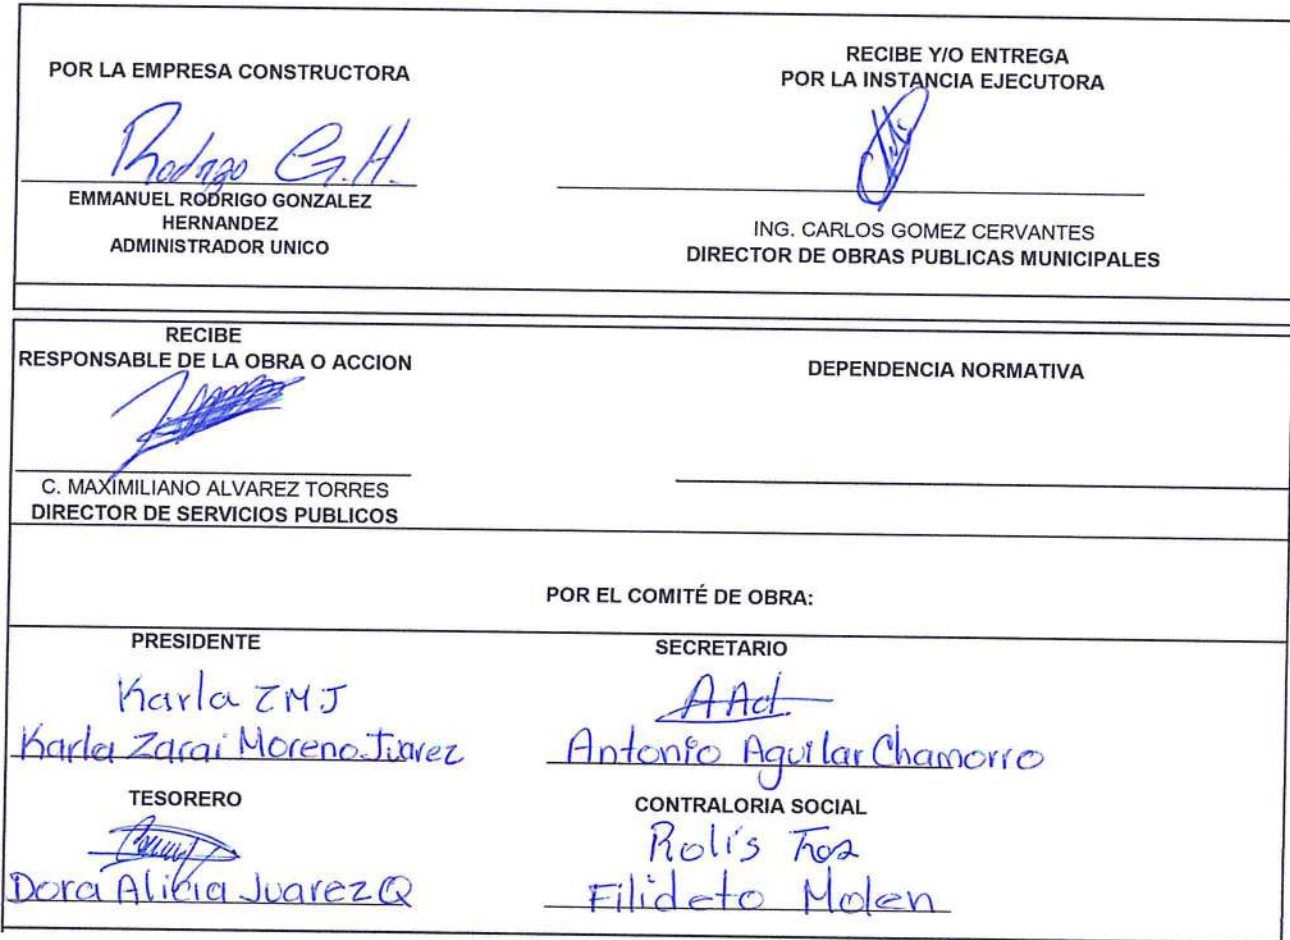 POR LA EMPRESA CONSTRUCTORA
Rodrigo G.H.
EMMANUEL RODRIGO GONZALEZ
HERNANDEZ
ADMINISTRADOR UNICO
RECIBE Y/O ENTREGA
POR LA INSTANCIA EJECUTORA
ING. CARLOS GOMEZ CERVANTES
DIRECTOR DE OBRAS PUBLICAS MUNICIPALES
RECIBE
RESPONSABLE DE LA OBRA O ACCION
C. MAXIMILIANO ALVAREZ TORRES
DIRECTOR DE SERVICIOS PUBLICOS
DEPENDENCIA NORMATIVA
POR EL COMITÉ DE OBRA:
PRESIDENTE
Karla ZMJ
Karla Zarai Moreno Juarez
SECRETARIO
Antonio Aguilar Chamorro
TESORERO
Dora Alicia Juarez Q
CONTRALORIA SOCIAL
Rolis
Filideto Molen